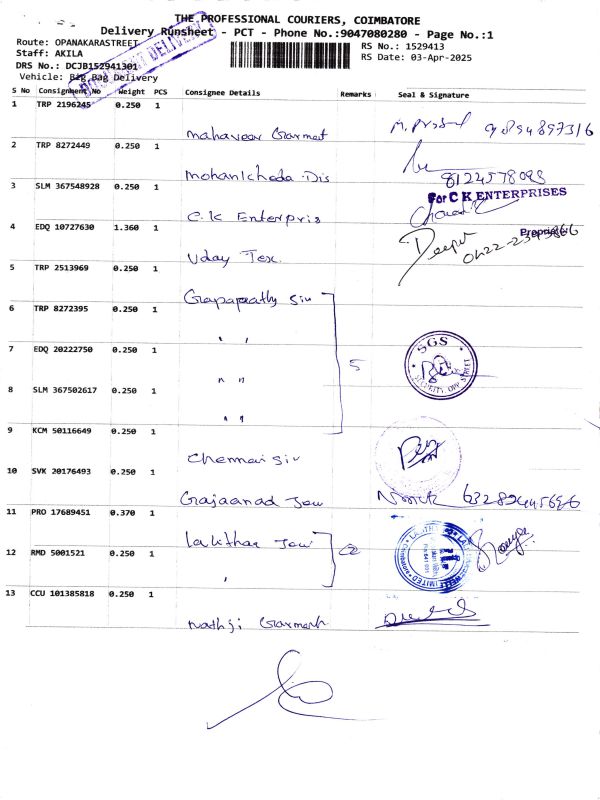 THE PROFESSIONAL COURIERS, COIMBATORE
Delivery Runsheet - PCT - Phone No.:9047080280 - Page No.:1
Route: OPANAKARASTREET
RS No.: 1529413
Staff: AKILA
RS Date: 03-Apr-2025
DRS No.: DCJB152941301
Vehicle: Big Bag Delivery
DELIVERY
S No Consignment No Weight PCS Consignee Details Remarks Seal & Signature
1 TRP 2196245 0.250 1
Mahaveer Garmet
2 TRP 8272449 0.250 1
Mohanlcheda Dis
3 SLM 367548928 0.250 1
For C K ENTERPRISES
C.K Enterpris
4 EDQ 10727630 1.360 1
Proprietor
Uday Tex.
Deepu
5 TRP 2513969 0.250 1
6 TRP 8272395 0.250 1
" "
7 EDQ 20222750 0.250 1
SGS
" "
5
SECURITY, OPP STREET
8 SLM 367502617 0.250 1
" "
9 KCM 50116649 0.250 1
Chennai Silv
10 SVK 20176493 0.250 1
Gajaanad Jew
11 PRO 17689451 0.370 1
Lalithaa Jew
2
12 RMD 5001521 0.250 1
"
13 CCU 101385818 0.250 1
Nathji Garment